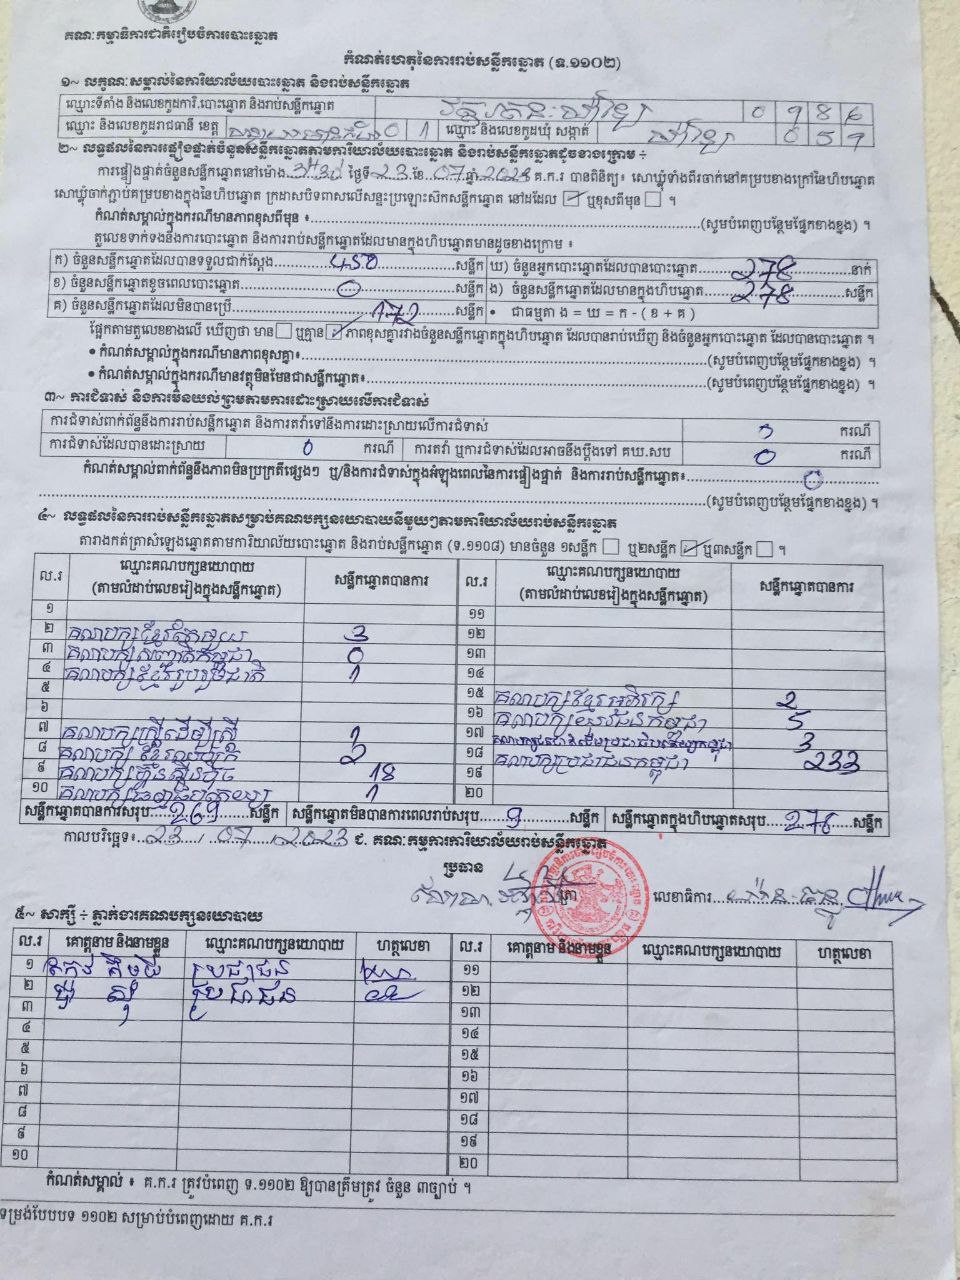 គណៈកម្មាធិការជាតិរៀបចំការបោះឆ្នោត
កំណត់ហេតុនៃការរាប់សន្លឹកឆ្នោត (ទ.១១០២)
១~ លក្ខណៈសម្គាល់នៃការិយាល័យបោះឆ្នោត និងរាប់សន្លឹកឆ្នោត
ឈ្មោះទីតាំង និងលេខកូដការិ.បោះឆ្នោត និងរាប់សន្លឹកឆ្នោត
ឈ្មោះ និងលេខកូដរាជធានី ខេត្ត 0 1 ឈ្មោះ និងលេខកូដឃុំ សង្កាត់
២~ លទ្ធផលនៃការផ្ទៀងផ្ទាត់បំនួនសន្លឹកឆ្នោតតាមការិយាល័យបោះឆ្នោត និងរាប់សន្លឹកឆ្នោតដូចខាងក្រោម ÷
ការផ្ទៀងផ្ទាត់ចំនួនសន្លឹកឆ្នោតនៅម៉ោង ថ្ងៃទី 23 ខែ 07 ឆ្នាំ 2023 គ.ក.រ បានពិនិត្យ៖ សោឃ្លុំទាំងពីរចាក់នៅគម្របខាងក្រៅនៃហិបឆ្នោត
សោឃ្លុំចាក់ភ្ជាប់គម្របខាងក្នុងនៃហិបឆ្នោត ក្រដាសបិទពាសលើសន្ទះប្រឡោះស៊កសន្លឹកឆ្នោត នៅដដែល ✓ ឬខុសពីមុន ។
កំណត់សម្គាល់ក្នុងករណីមានភាពខុសពីមុន ៖ (សូមបំពេញបន្ថែមផ្នែកខាងខ្នង) ។
តួលេខទាក់ទងនឹងការបោះឆ្នោត និងការរាប់សន្លឹកឆ្នោតដែលមានក្នុងហិបឆ្នោតមានដូចខាងក្រោម ៖
ក) ចំនួនសន្លឹកឆ្នោតដែលបានទទួលជាក់ស្តែង 450 សន្លឹក ឃ) ចំនួនអ្នកបោះឆ្នោតដែលបានបោះឆ្នោត 278 នាក់
ខ) ចំនួនសន្លឹកឆ្នោតខូចពេលបោះឆ្នោត 0 សន្លឹក ង) ចំនួនសន្លឹកឆ្នោតដែលមានក្នុងហិបឆ្នោត 278 សន្លឹក
គ) ចំនួនសន្លឹកឆ្នោតដែលមិនបានប្រើ 172 សន្លឹក • ជាធម្មតា ង = ឃ = ក - ( ខ + គ )
ផ្អែកតាមតួលេខខាងលើ ឃើញថា មាន ឬគ្មាន ✓ ភាពខុសគ្នារវាងចំនួនសន្លឹកឆ្នោតក្នុងហិបឆ្នោត ដែលបានរាប់ឃើញ និងចំនួនអ្នកបោះឆ្នោត ដែលបានបោះឆ្នោត ។
• កំណត់សម្គាល់ក្នុងករណីមានភាពខុសគ្នា៖ (សូមបំពេញបន្ថែមផ្នែកខាងខ្នង) ។
• កំណត់សម្គាល់ក្នុងករណីមានវត្ថុមិនមែនជាសន្លឹកឆ្នោត៖ (សូមបំពេញបន្ថែមផ្នែកខាងខ្នង) ។
៣~ ការជំទាស់ និងការមិនយល់ព្រមតាមការដោះស្រាយលើការជំទាស់
ការជំទាស់ពាក់ព័ន្ធនឹងការរាប់សន្លឹកឆ្នោត និងការតវ៉ាទៅនឹងការដោះស្រាយលើការជំទាស់ ករណី
ការជំទាស់ដែលបានដោះស្រាយ 0 ករណី ការតវ៉ា ឬការជំទាស់ដែលអាចនឹងប្តឹងទៅ គឃ.សប 0 ករណី
កំណត់សម្គាល់ពាក់ព័ន្ធនឹងភាពមិនប្រក្រតីផ្សេងៗ ឬ/និងការជំទាស់ក្នុងអំឡុងពេលនៃការផ្ទៀងផ្ទាត់ និងការរាប់សន្លឹកឆ្នោត៖ 0
(សូមបំពេញបន្ថែមផ្នែកខាងខ្នង) ។
៤~ លទ្ធផលនៃការរាប់សន្លឹកឆ្នោតសម្រាប់គណបក្សនយោបាយនីមួយៗតាមការិយាល័យរាប់សន្លឹកឆ្នោត
តារាងកត់ត្រាសំឡេងឆ្នោតតាមការិយាល័យបោះឆ្នោត និងរាប់សន្លឹកឆ្នោត (ទ.១១០៨) មានចំនួន ១សន្លឹក ឬ២សន្លឹក ✓ ឬ៣សន្លឹក ។
ល.រ ឈ្មោះគណបក្សនយោបាយ សន្លឹកឆ្នោតបានការ ល.រ ឈ្មោះគណបក្សនយោបាយ សន្លឹកឆ្នោតបានការ
(តាមលំដាប់លេខរៀងក្នុងសន្លឹកឆ្នោត) (តាមលំដាប់លេខរៀងក្នុងសន្លឹកឆ្នោត)
១ ១១
២ គណបក្សខ្មែរតែមួយ 3 ១២
៣ គណបក្សសញ្ជាតិកម្ពុជា 0 ១៣
៤ គណបក្សខ្មែររួបរួមជាតិ 1 ១៤
៥ ១៥ គណបក្សខ្មែរអភិរក្ស 2
៦ ១៦ គណបក្សយុវជនកម្ពុជា 5
៧ គណបក្សស្ត្រីដើម្បីស្ត្រី 1 ១៧ 3
៨ គណបក្ស 2 ១៨ គណបក្សប្រជាជនកម្ពុជា 233
៩ គណបក្ស 18 ១៩
១០ គណបក្សធម្មាធិបតេយ្យ 1 ២០
សន្លឹកឆ្នោតបានការសរុប 269 សន្លឹក សន្លឹកឆ្នោតមិនបានការពេលរាប់សរុប 9 សន្លឹក សន្លឹកឆ្នោតក្នុងហិបឆ្នោតសរុប 278 សន្លឹក
កាលបរិច្ឆេទ៖ 23 / 07 / 2023 ជ. គណៈកម្មការការិយាល័យរាប់សន្លឹកឆ្នោត
ប្រធាន
លេខាធិការ
៥~ សាក្សី ÷ ភ្នាក់ងារគណបក្សនយោបាយ
ល.រ គោត្តនាម និងនាមខ្លួន ឈ្មោះគណបក្សនយោបាយ ហត្ថលេខា ល.រ គោត្តនាម និងនាមខ្លួន ឈ្មោះគណបក្សនយោបាយ ហត្ថលេខា
១ ប្រជាជន ១១
២ ប្រជាជន ១២
៣ ១៣
៤ ១៤
៥ ១៥
៦ ១៦
៧ ១៧
៨ ១៨
៩ ១៩
១០ ២០
កំណត់សម្គាល់ ៖ គ.ក.រ ត្រូវបំពេញ ទ.១១០២ ឱ្យបានត្រឹមត្រូវ ចំនួន ៣ច្បាប់ ។
ទម្រង់បែបបទ ១១០២ សម្រាប់បំពេញដោយ គ.ក.រ